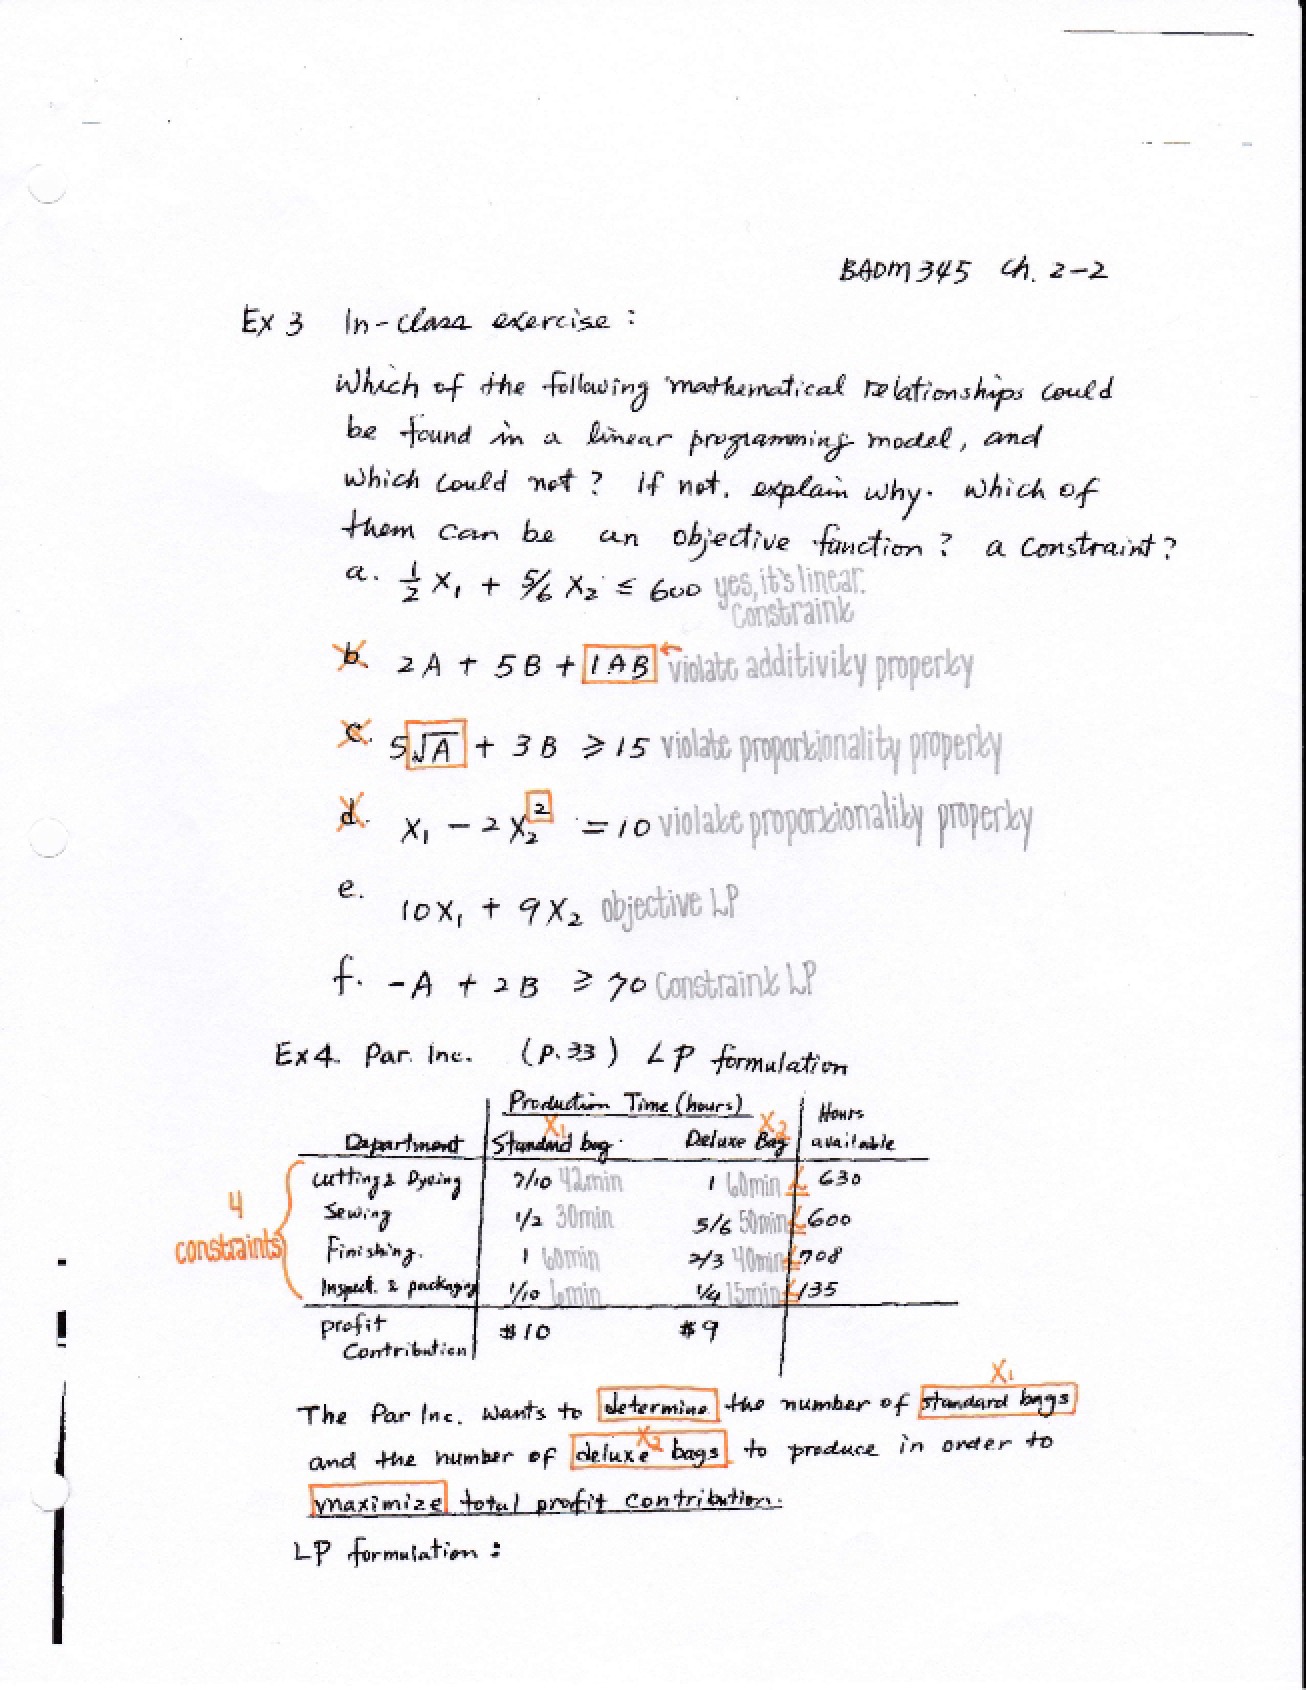 BADM 345 Ch. 2-2
Ex 3 In-class exercise :
Which of the following mathematical relationships could
be found in a linear programming model, and
which could not? if not, explain why. Which of
them can be an objective function? a constraint?
a. 1/2 X₁ + 5/6 X₂ ≤ 600 yes, it's linear.
Constraint
b. 2A + 5B + 1AB violate additivity property
c. 5√A + 3B ≥ 15 violate proportionality property
d. X₁ - 2X₂² = 10 violate proportionality property
e. 10X₁ + 9X₂ objective LP
f. -A + 2B ≥ 70 Constraint LP
Ex 4. Par. Inc. (P.33) LP formulation
Production Time (hours) Hours
X₁ X₂
Department Standard bag. Deluxe Bag available
Cutting & Dyeing 7/10 42min 1 60min ≤ 630
Sewing 1/2 30min 5/6 50min ≤ 600
Finishing. 1 60min 2/3 40min ≤ 708
Inspect. & packaging 1/10 6min 1/4 15min ≤ 135
4
constraints
Profit $10 $9
Contribution
X₁
The Par Inc. wants to determine the number of standard bags
X₂
and the number of deluxe bags to produce in order to
maximize total profit contribution.
LP formulation :